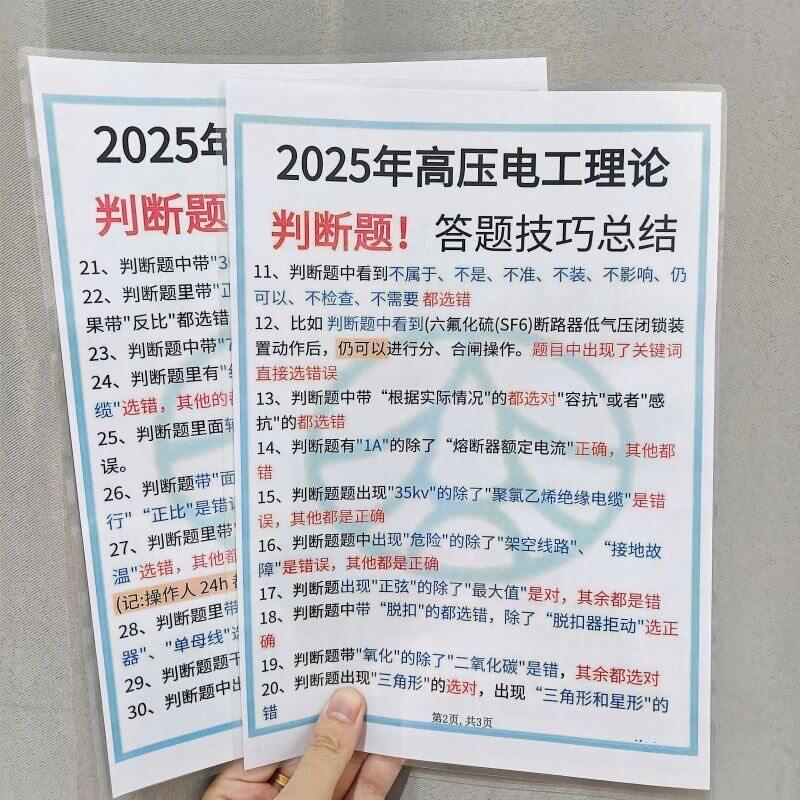 2025年
判断题
21、判断题中带"3
22、判断题里带"正
果带"反比"都选错
23、判断题中带"7
24、判断题里有"
缆"选错，其他的都
25、判断题里面
误。
26、判断题带"面
行" "正比"是错误
27、判断题里带"
温"选错，其他都
(记:操作人 24h
28、判断题里带
器"、"单母线"
29、判断题题干
30、判断题中出
2025年高压电工理论
判断题！答题技巧总结
11、判断题中看到不属于、不是、不准、不装、不影响、仍
可以、不检查、不需要 都选错
12、比如 判断题中看到(六氟化硫(SF6)断路器低气压闭锁装
置动作后，仍可以进行分、合闸操作。题目中出现了关键词
直接选错误
13、判断题中带“根据实际情况"的都选对"容抗"或者"感
抗"的都选错
14、判断题有"1A"的除了“熔断器额定电流"正确，其他都
错
15、判断题题出现"35kv"的除了"聚氯乙烯绝缘电缆"是错
误，其他都是正确
16、判断题题中出现"危险"的除了"架空线路"、“接地故
障"是错误，其他都是正确
17、判断题出现"正弦"的除了"最大值"是对，其余都是错
18、判断题中带“脱扣"的都选错，除了“脱扣器拒动"选正
确
19、判断题带"氧化"的除了"二氧化碳"是错，其余都选对
20、判断题出现"三角形"的选对，出现“三角形和星形"的
错
第2页, 共3页